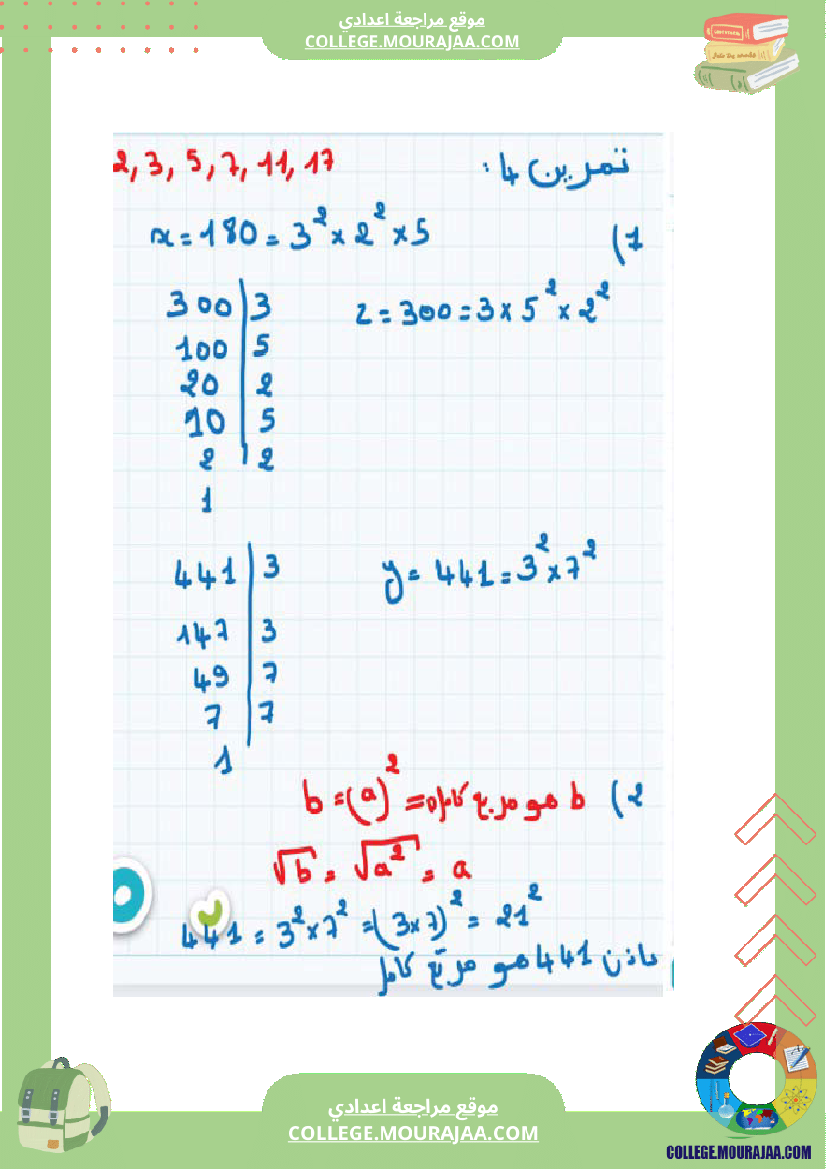 موقع مراجعة اعدادي
COLLEGE.MOURAJAA.COM
تمرين 4:
2, 3, 5, 7, 11, 17
1) x = 180 = 3² × 2² × 5
z = 300 = 3 × 5² × 2²
300 | 3
100 | 5
20 | 2
10 | 5
2 | 2
1
y = 441 = 3² × 7²
441 | 3
147 | 3
49 | 7
7 | 7
1
2) b هو مربع كامل = b = (a)²
√b = √a² = a
441 = 3² × 7² = (3 × 7)² = 21²
إذن 441 هو مربع كامل
موقع مراجعة اعدادي
COLLEGE.MOURAJAA.COM
COLLEGE.MOURAJAA.COM